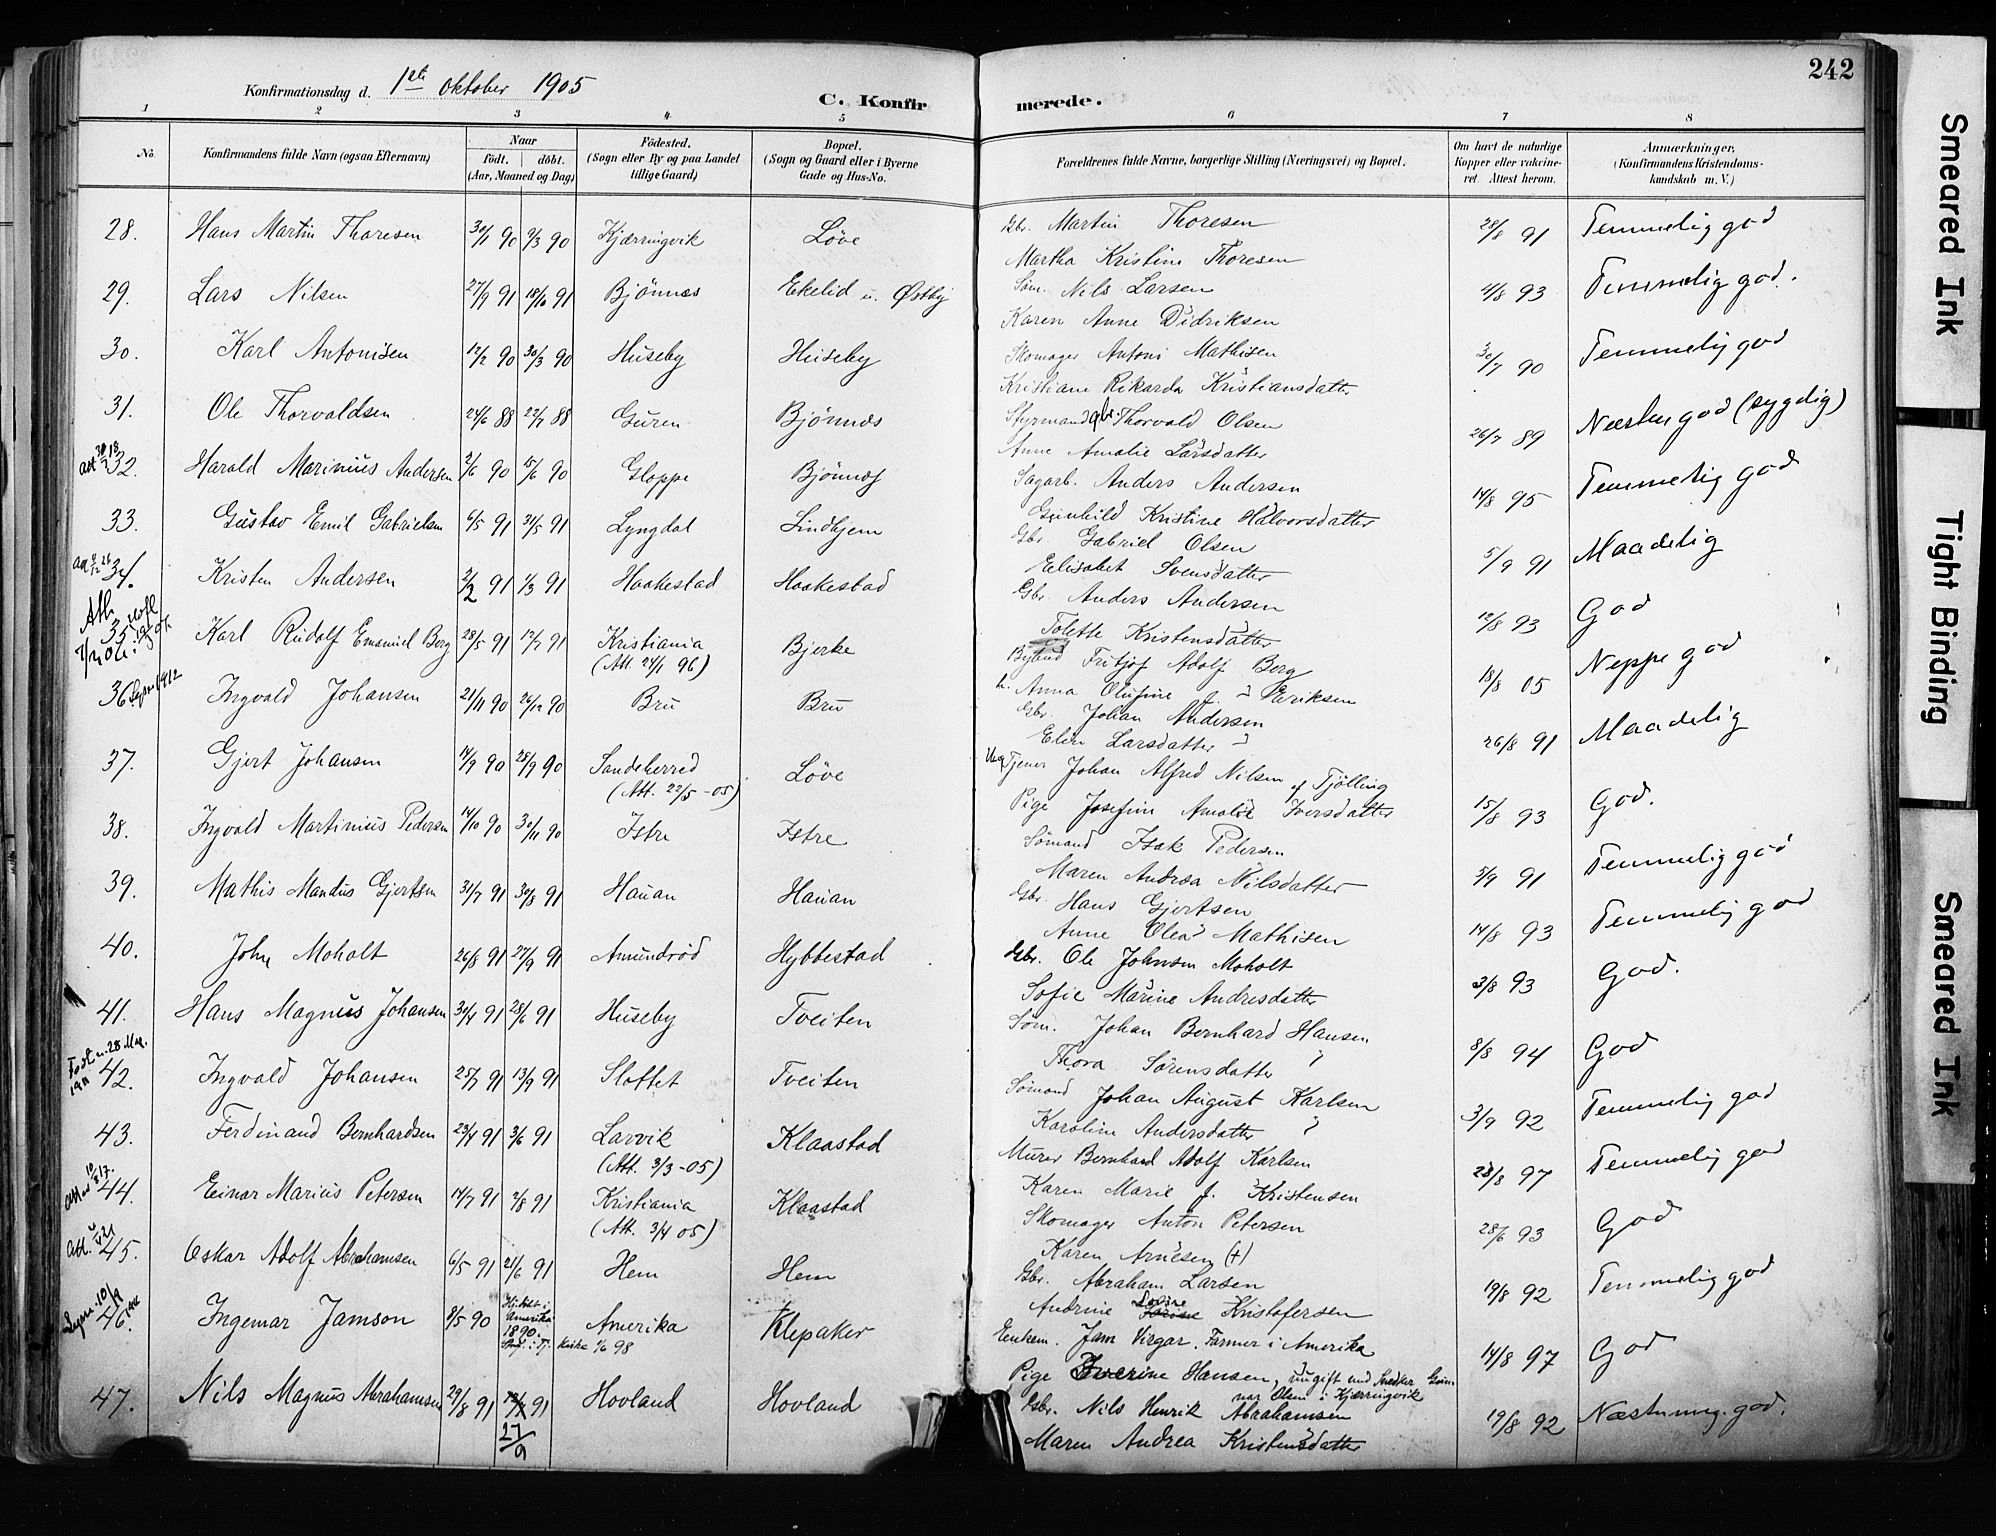 242
Konfirmationsdag d. 1ste Oktober 1905
C. Konfirmerede.
1 2 3 4 5 6 7 8
No. Konfirmandens fulde Navn (ogsaa Efternavn) Naar født. døbt. (Aar, Maaned og Dag) Fødested. (Sogn eller By og paa Landet tillige Gaard) Bopæl. (Sogn og Gaard eller i Byerne Gade og Hus-No. Forældrenes fulde Navne, borgerlige Stilling (Næringsvei) og Bopæl. Om havt de naturlige Kopper eller vaccineret. Attest herom. Anmærkninger, (Konfirmandens Kristendomskundskab m. V.)
28. Hans Martin Thoresen 30/1 90 9/3 90 Kjærringvik Löve Gbr. Martin Thoresen 28/8 91 Temmelig god
Martha Kristine Thoresen
29. Lars Nilsen 27/9 91 18/10 91 Bjönnes Ekelid u. Østby Söm. Nils Larsen 4/8 93 Temmelig god.
Karen Anne Didriksen
30. Karl Antonisen 12/2 90 30/3 90 Huseby Huseby Skomager Antoni Mathisen 30/7 90 Temmelig god
Kristiane Rikarda Kristiansdatter
31. Ole Thorvaldsen 24/6 88 22/7 88 Guren Bjönnes Styrmand gbr. Thorvald Olsen 26/7 89 Næsten god (sygelig)
Anne Amalie Larsdatter
32. Harald Marinius Andersen 2/6 90 15/6 90 Gloppe Bjönnes Sagarb. Anders Andersen 14/8 95 Temmelig god
Gunhild Kristine Halvorsdatter
33. Gustav Emil Gabrielsen 6/5 91 31/5 91 Lyngdal Lindhjem Gbr. Gabriel Olsen 5/9 91 Maadelig
Elisabet Svensdatter
34. Kristen Andersen 2/2 91 1/3 91 Haakestad Haakestad Gbr. Anders Andersen 12/8 93 God
Tolette Kristensdatter
35. Karl Rudolf Emanuel Berg 28/5 91 12/7 91 Kristiania Bjerke Bybud Fritjof Adolf Berg 18/8 05 Neppe god
(Att 24/1 96)
Anna Olufine f. Eriksen
36. Ingvald Johansen 21/11 90 26/12 90 Bru Bru Gbr. Johan Andersen 26/8 91 Maadelig
Elen Larsdatter
37. Gjert Johansen 14/9 90 28/9 90 Sandeherred Löve Ug. Tjener Johan Alfred Nilsen af Tjölling 15/8 93 God.
(Att. 22/5 -05)
Pige Josefine Amalie Iversdatter
38. Ingvald Martinius Pedersen 14/10 90 30/11 90 Istre Istre Sömand Isak Pedersen 3/9 91 Temmelig god
Maren Andrea Nilsdatter
39. Mathis Mandus Gjertsen 31/7 91 30/8 91 Hauan Hauan Gbr. Hans Gjertsen 14/8 93 Temmelig god
Anne Olea Mathisen
40. John Moholt 26/8 91 27/9 91 Amundröd Hybbestad Gbr. Ole Johnsen Moholt 3/8 93 God.
Sofie Marine Andresdatter
41. Hans Magnus Johansen 30/4 91 28/6 91 Huseby Tveiten Söm. Johan Bernhard Hansen 8/8 94 God
Thora Sörensdatter
42. Ingvald Johansen 25/7 91 13/9 91 Slottet Tveiten Sömand Johan August Karlsen 3/9 92 Temmelig god
Karoline Andersdatter
43. Ferdinand Bernhardsen 23/4 91 3/6 91 Larvik Klaastad Murer Bernhard Adolf Karlsen 28/8 97 Temmelig god
(Att. 3/3 -05)
Karen Marie f. Kristensen
44. Einar Marius Petersen 14/7 91 2/8 91 Kristiania Klaastad Skomager Anton Petersen 28/6 93 God
(Att. 3/4 05)
Karen Arnesen (+)
45. Oskar Adolf Abrahamsen 6/5 91 21/6 91 Hem Hem Gbr. Abraham Larsen 19/8 92 Temmelig god
Andrine Lovise Kristofersen
46. Ingemar Jamson 8/5 90 Hjdöbt i Amerika 1890. Amerika Klepaker Eenhem. Jam Virgar. Farmer i Amerika 14/8 97 God
Kirke 1/6 98
Pige Iverine Hansen, ungift med Snedker Gunnar Olsen i Kjærringvik
47. Nils Magnus Abrahamsen 29/8 91 27/9 91 Hovland Hovland Gbr. Nils Henrik Abrahamsen 19/8 92 Næsten meg. god.
Maren Andrea Kristensdatter
Smeared Ink
Tight Binding
Smeared Ink